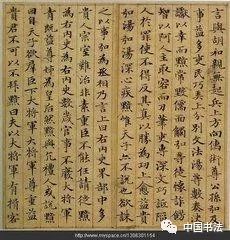 言與胡和親無起兵上方向儒術尊公孫弘及
事益多吏民巧弄上分別文法湯等數奏決
讞以幸而黯常毀儒面觸弘等徒懷詐飾
智以阿人主取容而刀筆吏專深文巧詆陷
人於罪使不得反其真以勝為功上愈益貴
弘湯弘湯深心疾黯唯天子亦不說也欲誅
之以事弘為丞相乃言上曰右內史界部中多
貴人宗室難治非素重臣不能任請徙黯
為右內史為右內史數歲官事不廢大將軍
青既益尊姊為皇后然黯與亢禮人或說黯
曰自天子欲群臣下大將軍大將軍尊重益
貴君不可以不拜黯曰夫以大將軍有揖客
中国书法